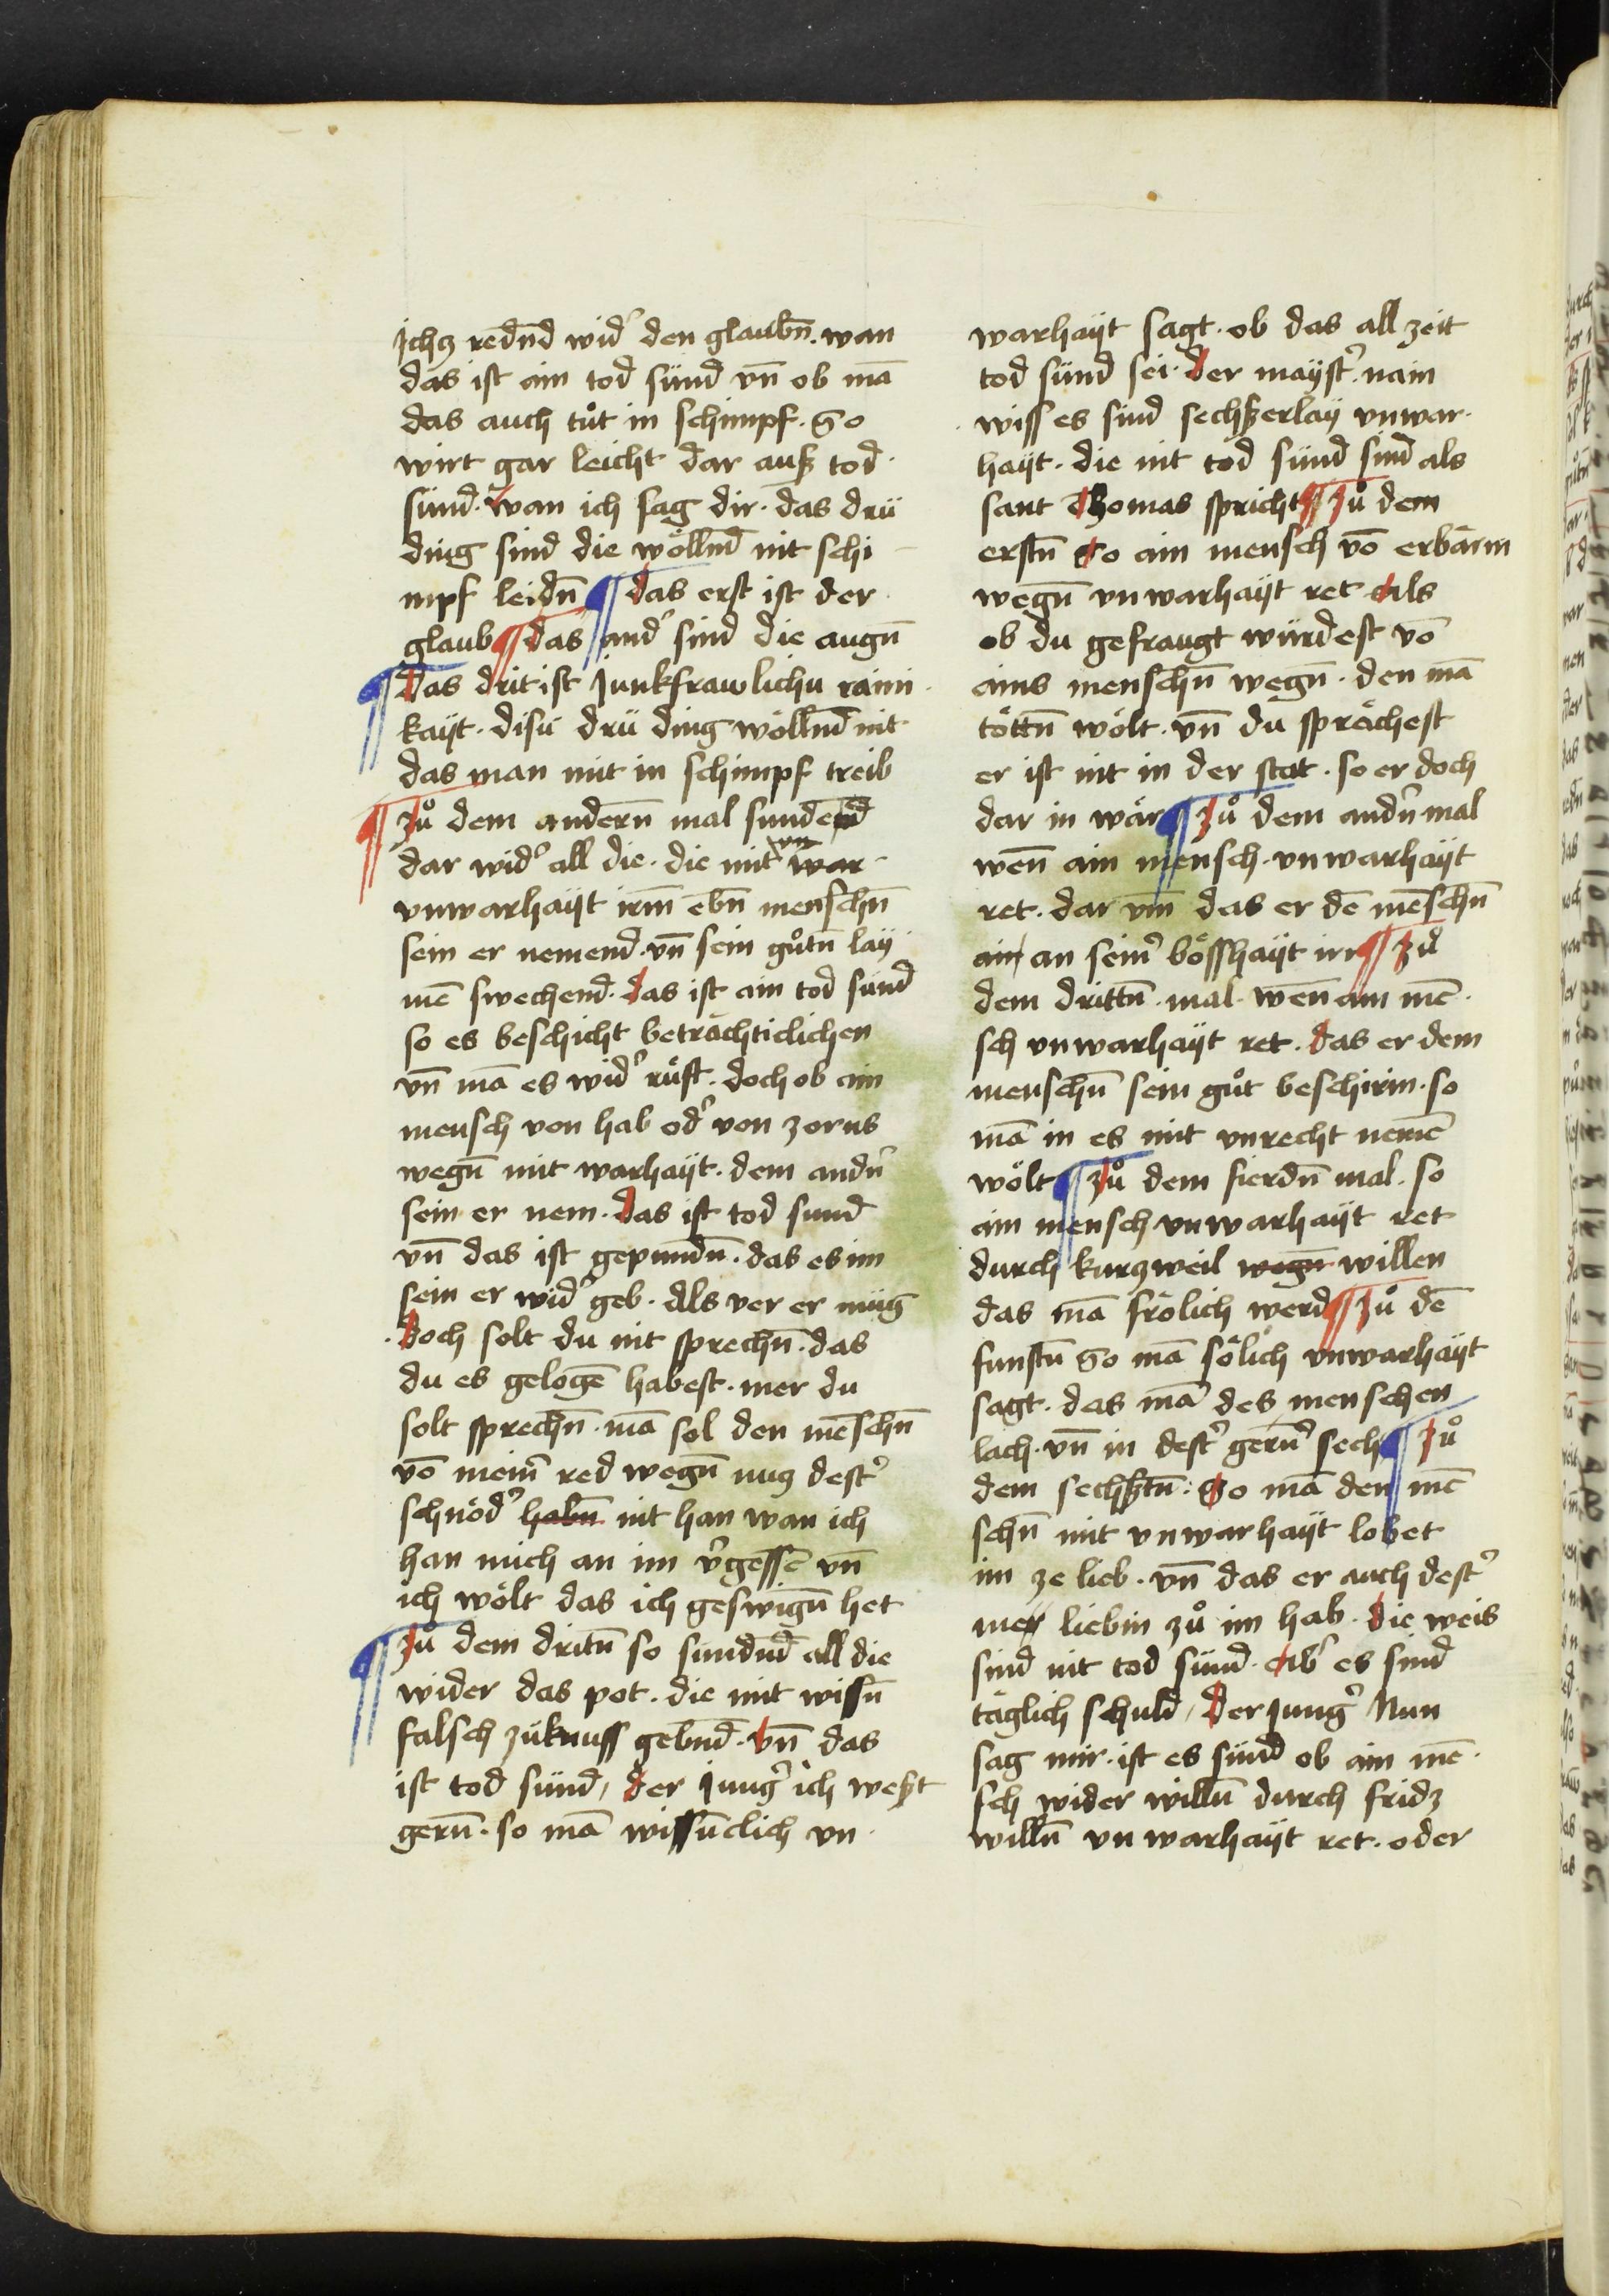 ichz rednd wid᾽ den glaubn̄. wan
das ist ain tod sünd vn̄ ob mā
das auch tůt in schimpf. So
wirt gar leicht dar auß tod
sünd. wan ich sag dir. das drü
ding sind die wöllnd nit schi
mpf leidn̄ ¶ das erst ist der
glaub ¶ das and᾽ sind die augn̄
¶ das drit ist junkfrawlichu raini
kayt. disü drü ding wöllnd nit
das man mit in schimpf treib
¶ zů dem andern̄ mal sundend
dar wid᾽ all die. die mit vn war
vnwarhayt irm ebn̄ menschn̄
sein er nemend. vn̄ sein gůtn̄ lay
mē swechend. das ist ain tod sünd
so es beschicht beträchticlichen
vn̄ mā es wid᾽ rüst. doch ob ain
mensch von hab od᾽ von zorns
wegn̄ mit warhayt. dem andn᾽
sein er nem. das ist tod sund
vn̄ das ist gepundn̄. das es im
sein er wid᾽ geb. Als ver er müg
. doch solt du nit sprechn̄. das
du es gelogē habest. mer du
solt sprechn̄. mā sol den mēschn̄
vō mein᾽ red wegn̄ nuz dest᾽
schnöd᾽ habn̄ nit han wan ich
han mich an im v᾽gessē vn̄
ich wölt das ich geswign̄ het
¶ zů dem dritn̄ so sundnd all die
wider das pot. die mit wissn̄
falsch züknuss gebnd. vn̄ das
ist tod sünd, der jung᾽ ich weßt
gern̄. so mā wissn̄clich vn
warhayt sagt. ob das all zeit
tod sünd sei. der mayst᾽. nain
wiss es sind sechßerlay vnwar
hayt. die nit tod sünd sind als
sant Thomas spricht ¶ zů dem
erstn̄ So ain mensch vō erbärm
wegn̄ vnwarhayt ret als
ob du gefraugt würdest vō
ains menschn̄ wegn̄. den mā
töttn̄ wölt. vn̄ du sprächest
er ist nit in der stat. so er doch
dar in wär ¶ zů dem andn᾽ mal
wen̄ ain mensch. vnwarhayt
ret. dar vm̄ das er dē mēschn̄
ain an sein᾽ bösshayt irr ¶ zů
dem drittn̄. mal. wen̄ ain mē
sch vnwarhayt ret. das er dem
menschn̄ sein gůt beschirm. so
mā in es mit vnrecht nemē
wölt ¶ zů dem fierdn̄ mal. so
ain mensch vnwarhayt ret
durch kurzweil wegn̄ willen
das mā frölich werd ¶ zů dē
funftn̄ So mā sölich vnwarhayt
sagt. das mā des menschen
lach. vn̄ in dest᾽ gern᾽ sech ¶ zů
dem sechßtn̄: So mā den mē
schn̄ mit vnwarhayt lobet
im ze lieb. vn̄ das er auch dest᾽
mer liebin zů im hab. die weis
sind nit tod sünd. ab᾽ es sind
täglich schuld, der jung᾽ Nun
sag mir. ist es sünd ob ain mē
sch wider willn̄ durch fridz
willn̄ vnwarhayt ret. oder